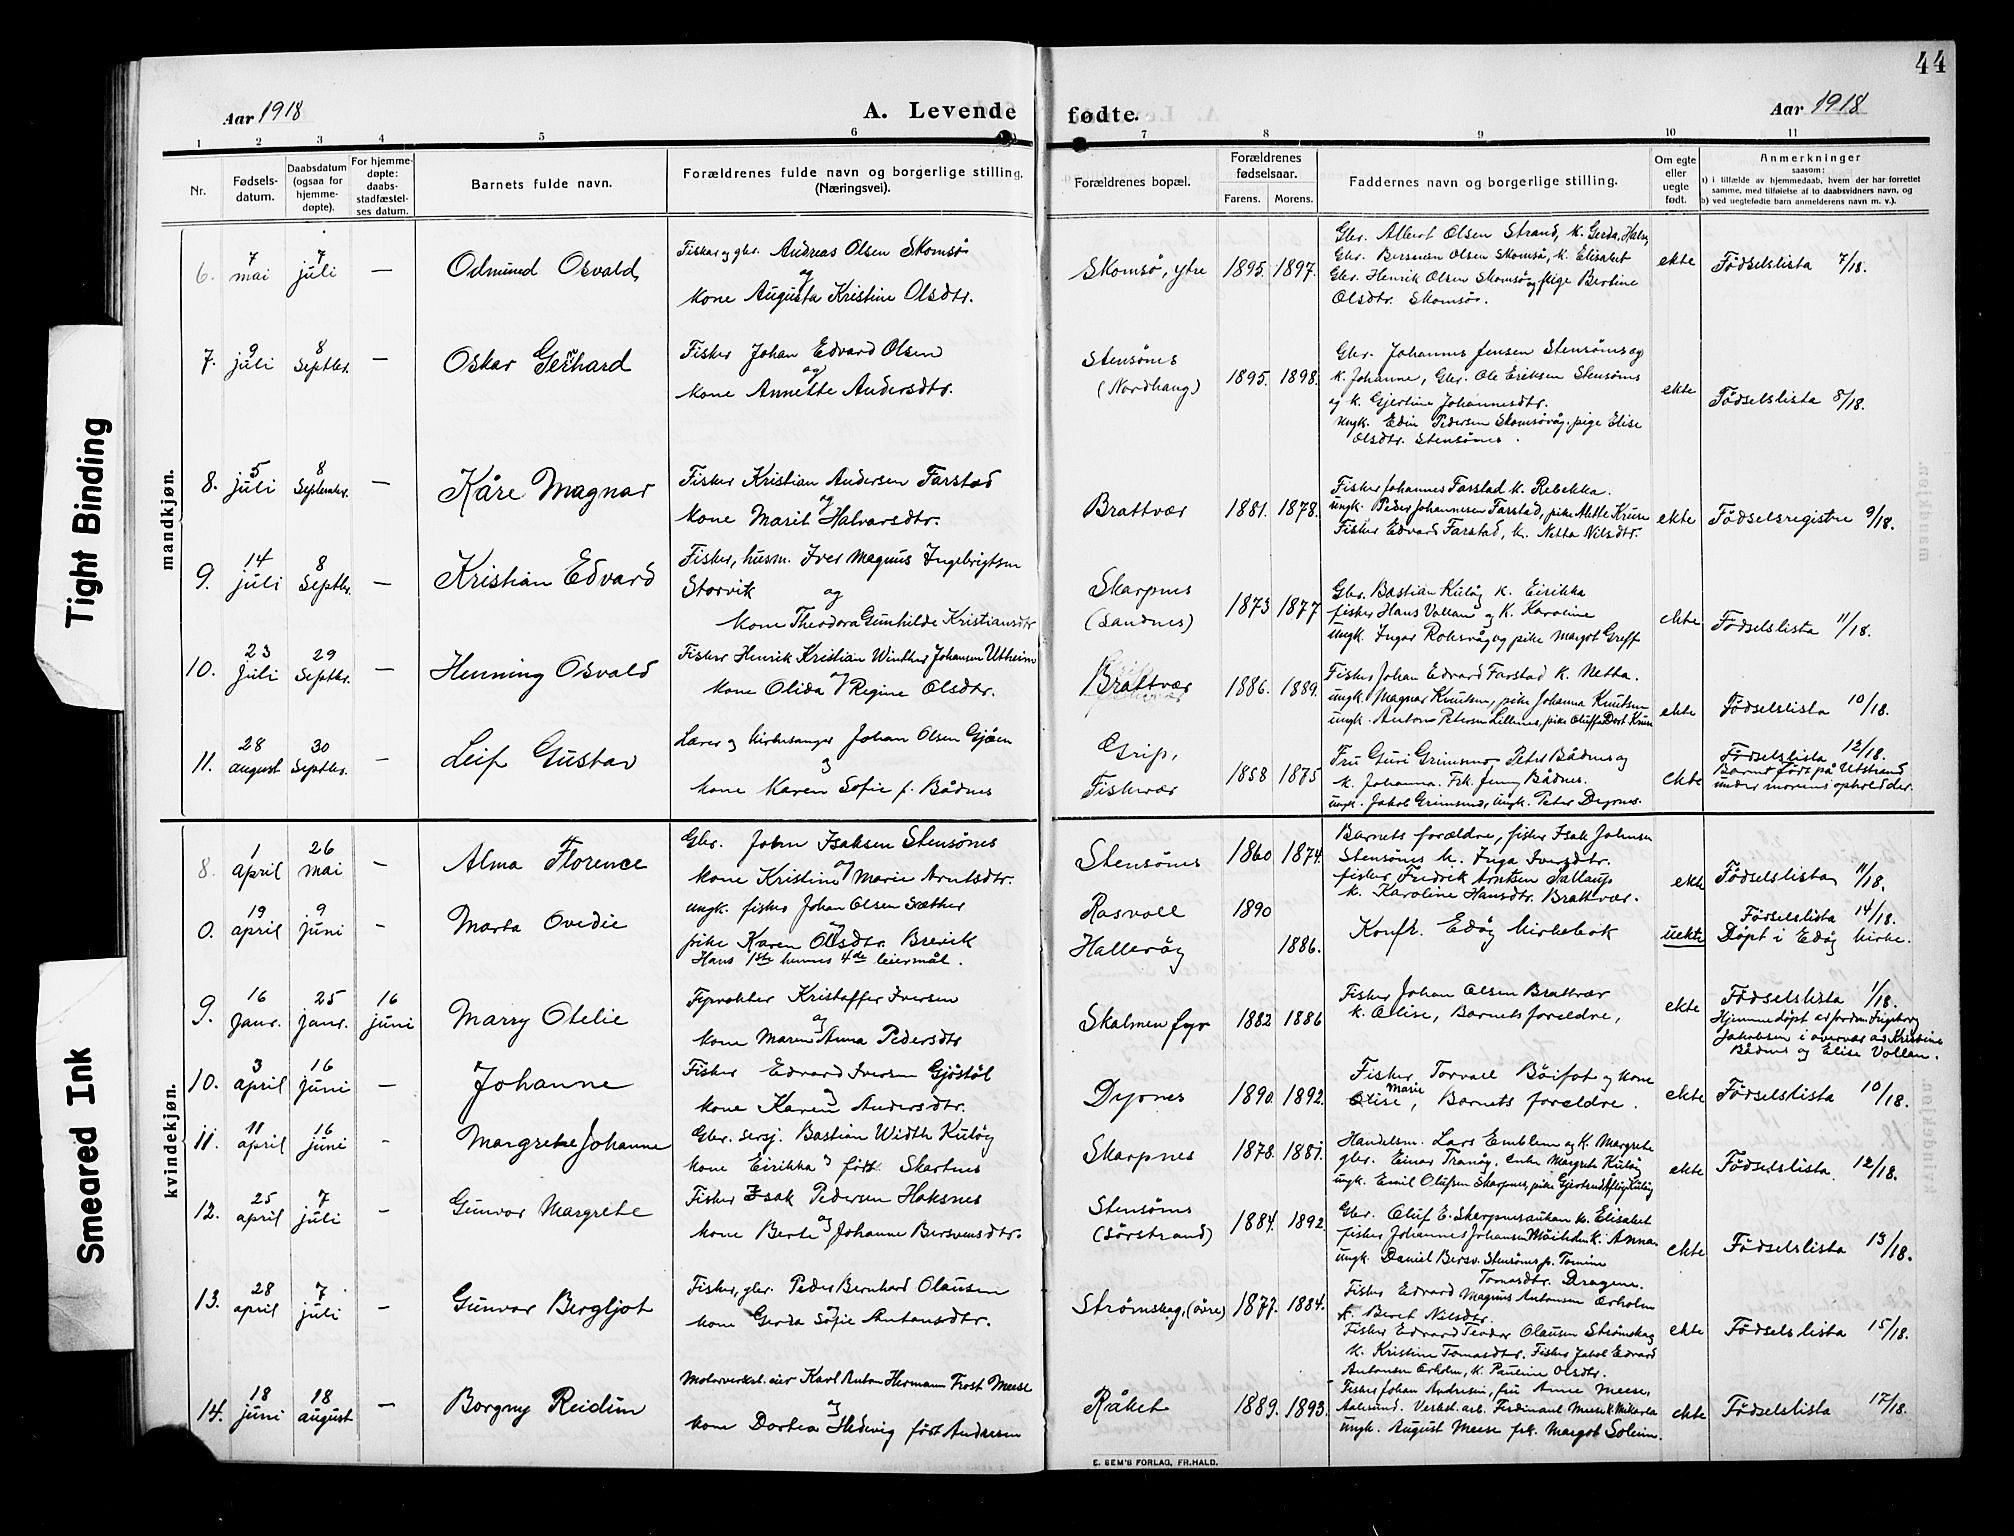 44
Aar 1918
A. Levende fødte.
Aar 1918
1 2 3 4 5 6 7 8 9 10 11
Nr.
Fødsels-
datum.
Daabsdatum
(ogsaa for
hjemme-
døpte).
For hjemme-
døpte:
daabs-
stadfæstel-
ses datum.
Barnets fulde navn.
Forældrenes fulde navn og borgerlige stilling,
(Næringsvei).
Forældrenes bopæl.
Forældrenes
fødselsaar.
Farens. Morens.
Faddernes navn og borgerlige stilling.
Om egte
eller
uegte
født.
Anmerkninger
saasom:
a) i tilfælde av hjemmedaab, hvem der har forrettet
samme, med tilføielse af to daabsvidners navn, og
b) ved uegtefødte barn anmelderens navn m. v.).
mandkjøn.
6. 7 mai 7 juli — Odmund Osvald
Fisker og gbr. Andreas Olsen Skomsö
og
kone Augusta Kristine Olsdtr.
Skomsö, ytre 1895. 1897.
Gbr. Albert Olsen Strand, k. Gerda,
Gbr. Bersven Olsen Skomsö, k. Elisabet
Gbr. Henrik Olsen Skomsö og pige Bertine
Olsdtr. Skomsö.
ekte Födselslista 7/18.
7. 9 juli 8 Septbr. — Oskar Gerhard
Fisker Johan Edvard Olsen
og
kone Annette Andersdtr.
Stensönes
(Nordhaug) 1895. 1898.
Gbr. Johannes Jensen Stensönes og
k. Johanne, Gbr. Ole Eriksen Stensönes
og k. Gjertine Johannesdtr.
ungk. Edin Pedersen Skomsövåg, pige Elise
Olsdtr. Stensönes.
ekte Födselslista 8/18.
8. 5 juli 8 September. — Kåre Magnar
Fisker Kristian Andersen Farstad
og
kone Marit Halvarsdtr.
Brattvær 1881. 1878.
Fisker Johannes Farstad k. Rebekka.
ungk. Peder Johannesen Farstad, pike Mette Kruse
Fisker Edvard Farstad, k. Netta Nilsdtr.
ekte Födselsregistre 9/18.
9. 14 juli 8 Septbr. — Kristian Edvard
Fisker, husm. Iver Magnus Ingebrigtsen
Storvik og
kone Theodora Gunhilde Kristiansdtr
Skarpnes
(Sandnes) 1873 1877
Gbr. Bastian Kulög k. Eirikka
fisker Hans Vollan og k. Karoline
ungk. Ingar Roksvåg og pike Margot Greff
ekte Födselslista 11/18.
10. 23 Juli 29 Septbr. — Henning Osvald
Fisker Henrik Kristian Winther Johansen Utheim
og
kone Olida Regine Olsdtr.
Brattvær 1886. 1889.
Fisker Johan Edvard Farstad k. Netta.
ungk. Magnar Knutsen, pike Johanna Knutsen
ungk. Anton Petersen Lillenes, pike Oluffa Dort Kruse
ekte Födselslista 10/18.
11. 28 august 30 Septbr. — Leif Gustav
Lærer og kirkesanger Johan Olsen Gjöen
og
kone Karen Sofie f. Bådnes
Grip,
Fiskevær 1858 1875
Fru Guri Grimsmo, Peter Bådnes og
k. Johanna. Frk. Jenny Bådnes.
ungk. Jakob Grimsmo, ungk. Peter Dyrnes.
ekte Födselslista 12/18.
Barnet födt på Utstrand
under morens ophold der.
kvindekjøn.
8. 1 april 26 mai — Alma Florence
Gbr. John Isaksen Stensönes
og
kone Kristine Marie Arntsdtr.
Stensönes 1860 1874.
Barnets forældre, fisker Isak Johnsen
Stensönes k. Inga Iversdtr.
fisker Fredrik Arntsen
k. Karoline Hansdtr. Brattvær.
ekte Födselslista 11/18.
0. 19 april 9 juni — Marta Ovedie
ungk. fisker Johan Olsen Sæther
og
pike Karen Olsdtr. Brevik
Hans 1ste hennes 4de leiermål.
Rosvoll 1890
Hallevåg 1886.
Konfr. Edöy kirkebok
uekte Födselslista 14/18.
Döpt i Edöy kirke.
9. 16 Janr. 25 Janr. 16 juni Marry Otelie
Fyrvokter Kristoffer Iversen
og
kone Maren Anna Pedersdtr
Skalmen fyr 1882 1886
Fisker Johan Olsen Brattvær
k. Olise, Barnets forældre,
ekte Födselslista 1/18.
Hjemmedöpt av jordm. Ingeborg
Jakobsen i overvær av Kristine
Bådnes og Elise Vollan.
10. 3 april 16 juni — Johanne
Fisker Edvard Iversen Gjöstöl
og
kone Karen Andersdtr.
Dyrnes 1890. 1892.
Fisker Torvall Böifot og kone
Marie
Olise, Barnets forældre.
ekte Födselslista 10/18.
11. 11 april 16 juni — Margrete Johanne
Gbr. sersj. Bastian Width Kulög
og
kone Eirikka født Skartnes
Skarpnes 1878. 1881.
Handelsm. Lars Emblem og k. Margrete
gbr. Einar Tranög. enke Margrete Kulög
ungk. Emil Olufsen Skarpnes, pike Gjertrud Kulög
ekte Födselslista. 12/18.
12. 25 april 7 juli — Gunvor Margrete
Fisker Isak Pedersen Haksnes
og
kone Berte Johanne Bersvensdtr.
Stensönes
(Sörstrand) 1884. 1892.
Gbr. Oluf E. Skarpnes k. Elisabet
fisker Johannes Johansen k. Anna
ungk. Daniel Bersv. Stensönes p. Tomine
Tomasdtr. Dragene.
ekte Födselslista 13/18.
13. 28 april 7 juli — Gunvor Bergljot
Fisker, gbr. Peder Bernhard Olausen
og
kone Gerda Sofie Antonsdtr.
Strömskag, (övre) 1877. 1884.
Fisker Edvard Magnus Antonsen Orholm
k. Beret Nilsdtr.
Fisker Edvard Teodor Olausen Strömskag
k. Kristine Tomasdtr. Fisker Jakob Edvard
Antonsen Orholm, k. Pauline Olsdtr.
ekte Födselslista 15/18.
14. 18 juni 18 august — Borgny Reidun
Motorverkst. eier Karl Anton Hermann Frost Meese
og
kone Dortea Hedevig født Andresen
Råket 1889. 1893.
Fisker Johan Andresen, fru Anne Meese,
Aalesund. Verkst. arb. Ferdinant Meese k. Mikarla
ungk. August Meese frk. Margot Soleim.
ekte Födselslista 17/18.
E. SEM'S FORLAG, FR.HALD.
Tight Binding
Smeared Ink